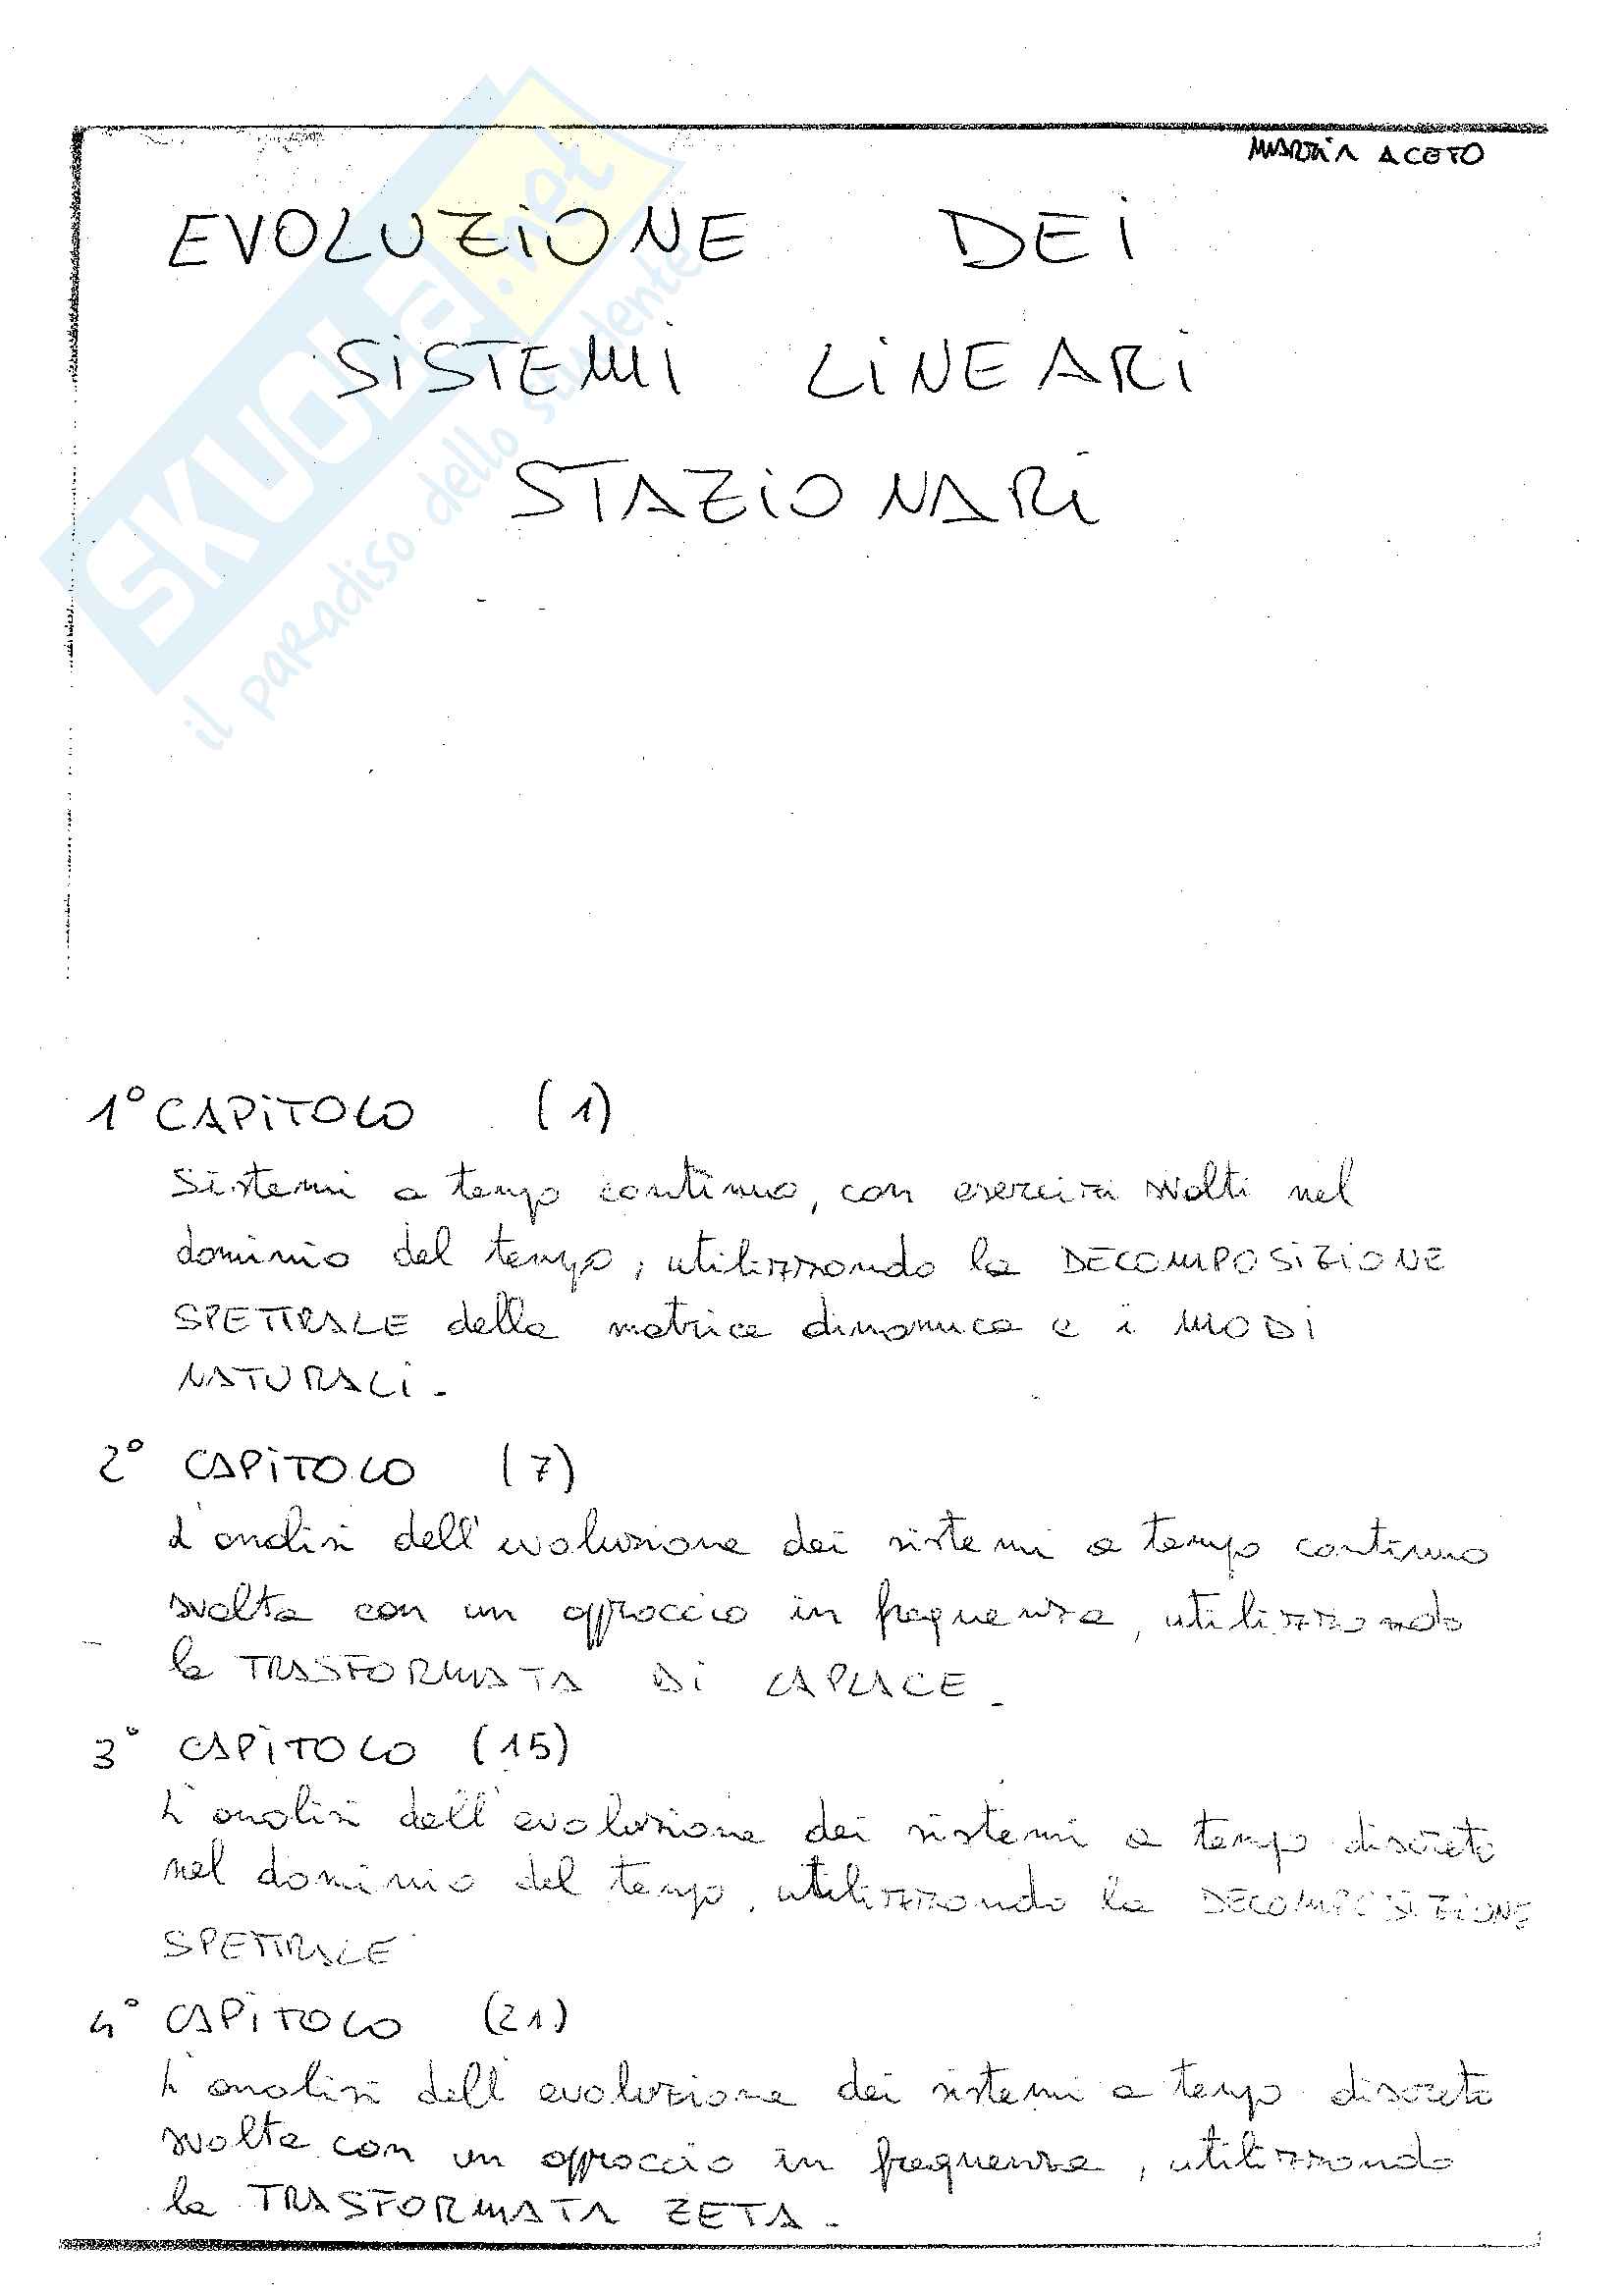 MARTIN ACETO
EVOLUZIONE DEI
SISTEMI LINEARI
STAZIONARI
SKUOLA.net
il paradiso dello studente
1° CAPITOLO (1)
Sistemi a tempo continuo, con esercizi svolti nel
dominio del tempo, utilizzando la DECOMPOSIZIONE
SPETTRALE della matrice dinamica e i MODI
NATURALI.
2° CAPITOLO (7)
L'analisi dell'evoluzione dei sistemi a tempo continuo
svolta con un approccio in frequenza, utilizzando
la TRASFORMATA DI LAPLACE.
3° CAPITOLO (15)
L'analisi dell'evoluzione dei sistemi a tempo discreto
nel dominio del tempo, utilizzando la DECOMPOSIZIONE
SPETTRALE
4° CAPITOLO (21)
L'analisi dell'evoluzione dei sistemi a tempo discreto
svolta con un approccio in frequenza, utilizzando
la TRASFORMATA ZETA.